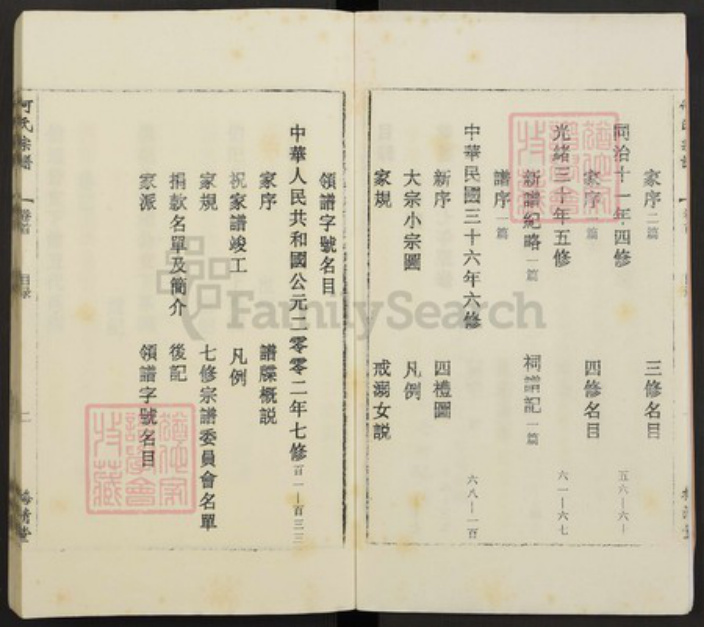 家序二篇 三修名目
同治十一年四修 五六—六十
家序一篇 四修名目
光緒三十年五修 六一—六七
新譜紀略一篇 祠譜記一篇
譜序一篇
中華民國三十六年六修 六八—一百
新序 四禮圖
大宗小宗圖 凡例
家規 戒溺女説
領譜字號名目
中華人民共和國公元二零零二年七修 百一—百三三
家序 譜牒概説
祝家譜竣工 凡例
家規 七修宗譜委員會名單
捐款名單及簡介 後記
家派 領譜字號名目
何氏宗譜 卷首 目录 二
FamilySearch